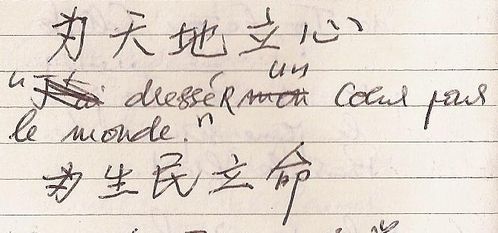 为天地立心
un
" dresséR mon Coeur pour
le monde."
为生民立命